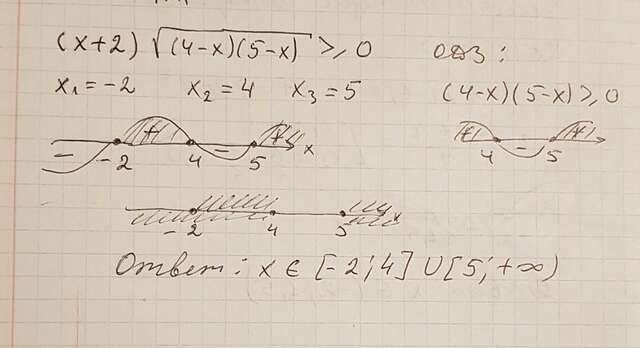 (x+2) √(4-x)(5-x) ≥ 0 ОДЗ:
x₁ = -2 x₂ = 4 x₃ = 5 (4-x)(5-x) ≥ 0
- + - + x
-2 4 5
+ - +
4 5
x
-2 4 5
Ответ: x ∈ [-2; 4] ∪ [5; +∞)